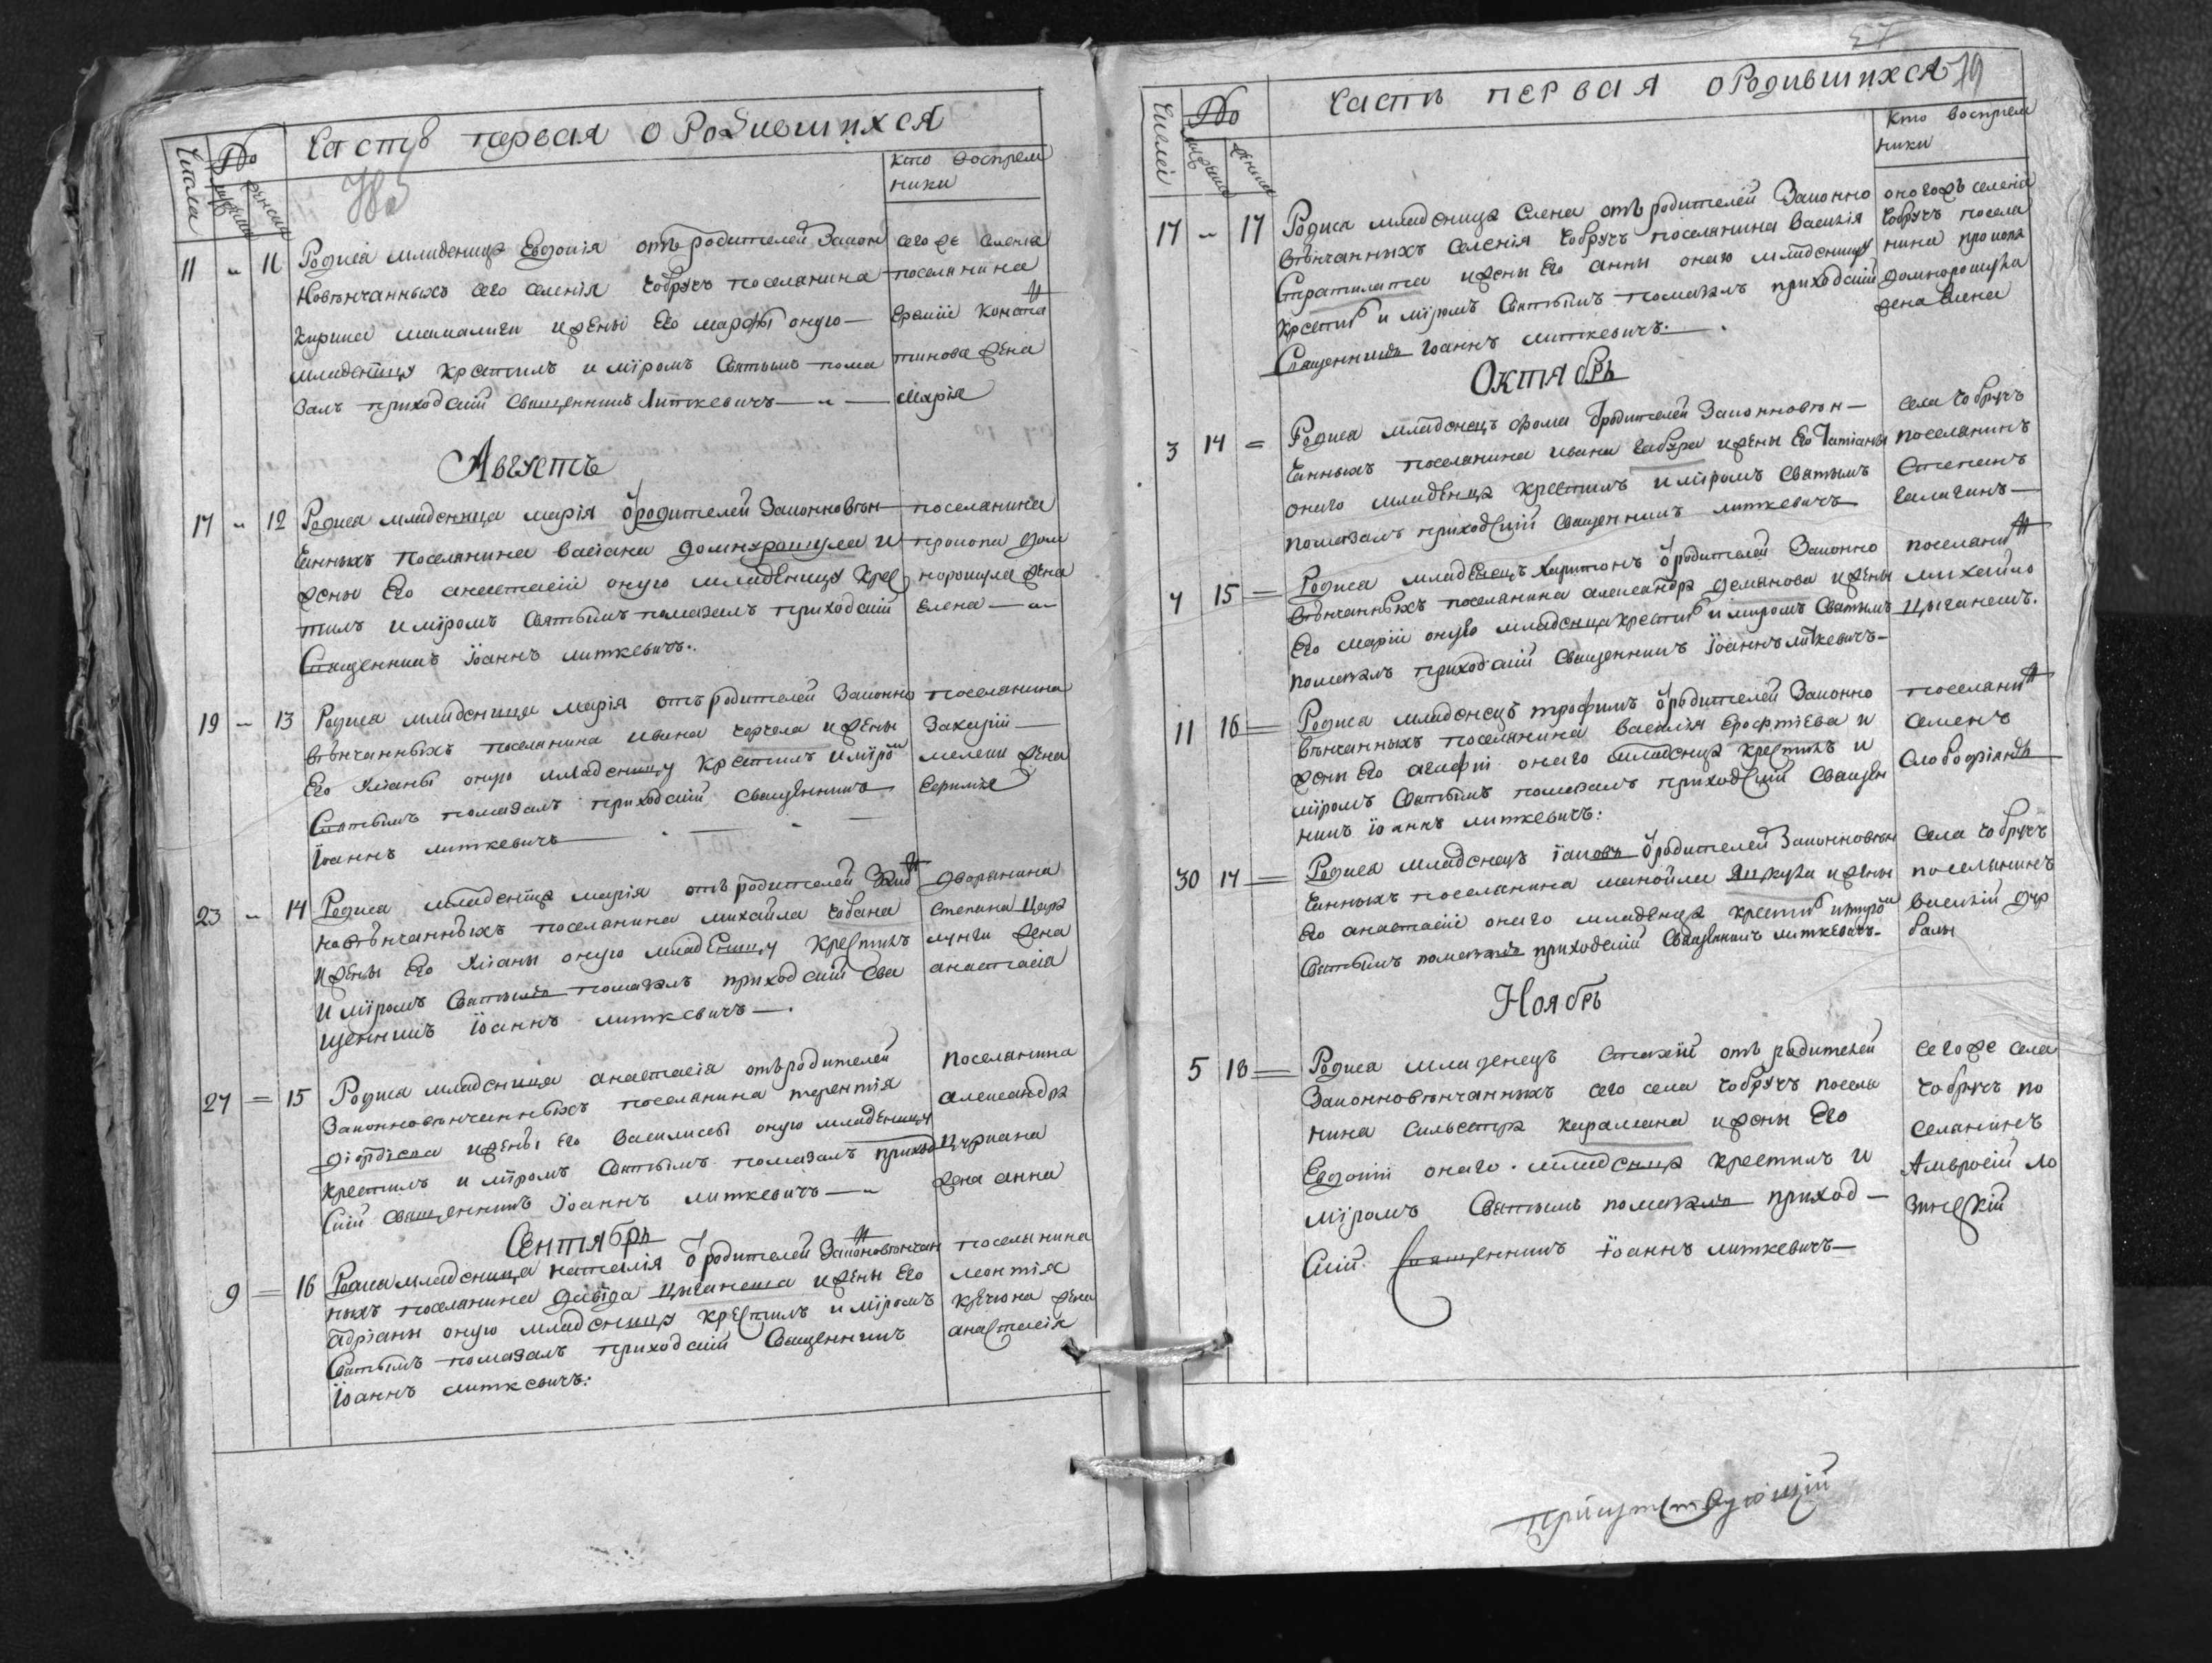 Часть первая о Родившихся
Числа
№
мужска
женска
кто воспрем
ники
11 " 11 Родиса младеница Евдокія отъ родителей Закон
новѣнчанныхъ сего селенія Чобручъ поселанина
Кирика мамалиги и жены Его марфы оную
младеницу крестилъ и мѵромъ Святымъ пома
залъ приходскій священникъ Литкевичъ
сего же селенія
поселанина
Еремiи Конста
тинова жена
Марія
Августъ
17 " 12 Родиса младеница марія ѿ родителей Законновѣн
чанныхъ поселанина василія домнурошула и
жены Его анастасіи оную младеницу крес
тилъ и мѵромъ Святымъ помазалъ приходскій
Священникъ Іоаннъ литкевичъ.
поселанина
прокопа дом
норошула жена
Елена
19 - 13 Родиса младеница марія отъ родителей Законно
вѣнчанныхъ поселанина ивана черчела и жены
Его Уліаны оную младеницу крестилъ и мѵро
Святымъ помазалъ приходскій священникъ
Іоаннъ литкевичъ
поселанина
Захарій
мелеки жена
23 " 14 Родиса младеница марія отъ родителей Зако
новѣнчанныхъ поселанина михайла чобана
и жены Его Уліаны оную младеницу крестилъ
и мѵромъ Святымъ помазалъ приходскій Сва
щенникъ Іоаннъ литкевичъ
дворанина
степана Цара
лунги жена
анастасіа
27 = 15 Родиса младеница анастасія отъ родителей
Законновѣнчанныхъ поселанина терентія
и жены Его василисы оную младеницу
крестилъ и мѵромъ Святымъ помазалъ приход
скій священникъ Іоаннъ литкевичъ
поселанина
александра
Цуркана
жена анна
Сентябрь
9 = 16 Родиса младеница наталія ѿ родителей Законовѣнчан
ныхъ поселанина давіда цыганеша и жены Его
адріаны оную младеницу крестилъ и мѵромъ
Святымъ помазалъ приходскій Священникъ
Іоаннъ литкевичъ:
поселанина
леонтія
жена
анастасія
79
Часть первая о Родившихся
Числа
№
мужска
женска
Кто воспрем
ники
17 " 17 Родиса младеница Елена отъ родителей Законно
вѣнчанныхъ селенія Чобручъ поселанина василія
Стратилата и жены Его анны оную младеницу
крестилъ и мѵромъ Святымъ помазалъ приходскій
Священникъ Іоаннъ литкевичъ.
оного жъ селенія
Чобручъ посела
нина прокопа
домнорошула
жена Елена
Октябрь
3 14 = Родиса младенецъ фома ѿ родителей Законновѣн
чанныхъ поселанина ивана чабура и жены Его Татіаны
онаго младенца крестилъ и мѵромъ Святымъ
помазалъ приходскій священникъ литкевичъ
села Чобручъ
поселанинъ
Степанъ
галаганъ
4 15 = Родиса младенецъ Харитонъ ѿ родителей Законно
вѣнчанныхъ поселанина александра деманова и жены
Его маріи онуго младенца крестилъ и мѵромъ Святымъ
помазалъ приходскій священникъ Іоаннъ литкевичъ
поселани
михайло
цыганешъ.
11 16 = Родиса младенецъ трофимъ ѿ родителей Законно
вѣнчанныхъ поселанина василія Ерофтіева и
жены Его агафіи онаго младенца крестилъ и
мѵромъ Святымъ помазалъ приходскій Сващен
никъ Іоаннъ литкевичъ:
поселани
семенъ
30 17 = Родиса младенецъ Іаковъ ѿ родителей Законновѣн
чанныхъ поселанина манойли и жены
Его анастасіи онаго младенца крестилъ и мѵро
Святымъ помазалъ приходскій Священникъ литкевичъ
села Чобручъ
поселанинъ
василій дур
балы
Ноябрь
5 18 = Родиса младенецъ отъ родителей
Законновѣнчанныхъ сего села Чобручъ посела
нина Сильвестра карамана и жены Его
Евдокіи онаго младенца крестилъ и
мѵромъ Святымъ помазалъ приход
скій Священникъ Іоаннъ литкевичъ
сего же села
Чобручъ по
селанинъ
Амвросій Ло
зинскій
Присутствующій